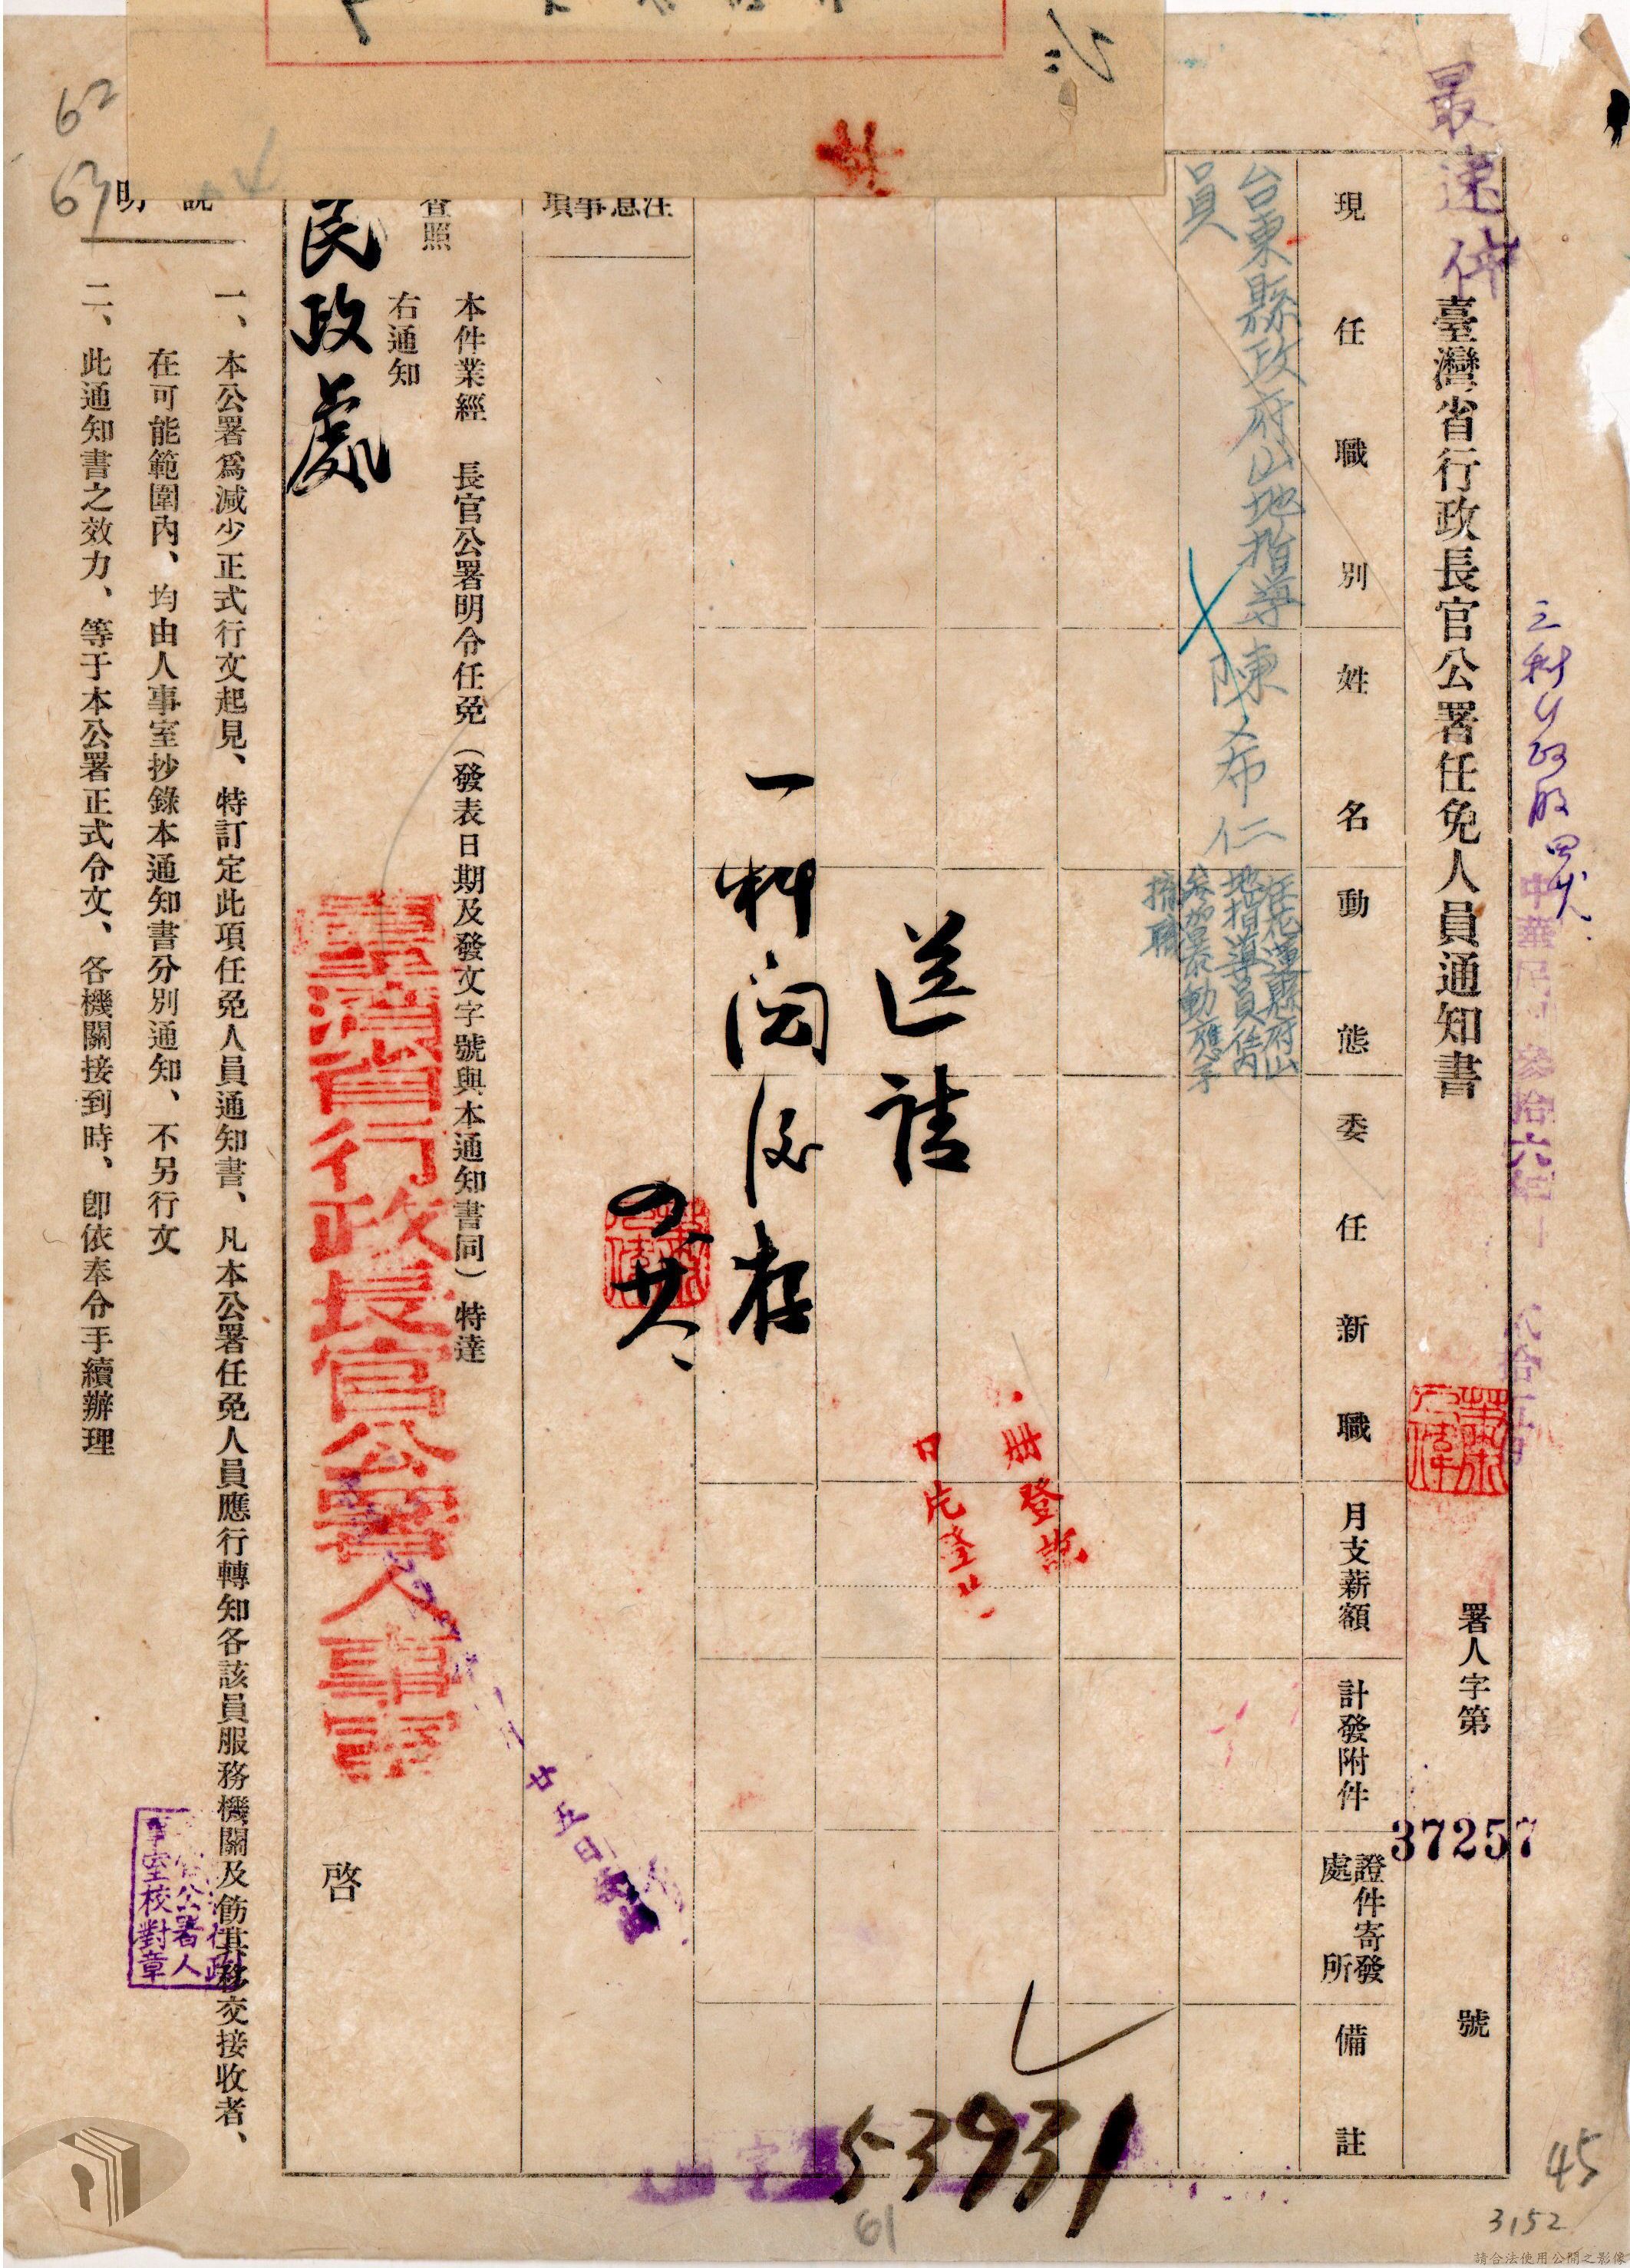 最速件
臺灣省行政長官公署任免人員通知書
署人字第
37257
號
現任職別
姓名
動態
委任新職
月支薪額
計發附件
證件寄發
處所
備註
台東縣政府山地指導
員
陳文布仁
任花蓮縣府山
地指導員任內
參加暴動應予
撤職
送請
一科閱後存
冊登記
日片登
注意事項
本件業經 長官公署明令任免(發表日期及發文字號與本通知書同)特達
查照
右通知
民政處
臺灣省行政長官公署人事室
啓
廿五日
說明
一、本公署爲減少正式行文起見、特訂定此項任免人員通知書、凡本公署任免人員應行轉知各該員服務機關及飭其移交接收者、
在可能範圍內、均由人事室抄錄本通知書分別通知、不另行文
二、此通知書之效力、等于本公署正式令文、各機關接到時、卽依奉令手續辦理
公署人
事室校對章
53931
62
63
61
45
3152
請合法使用公開之影像